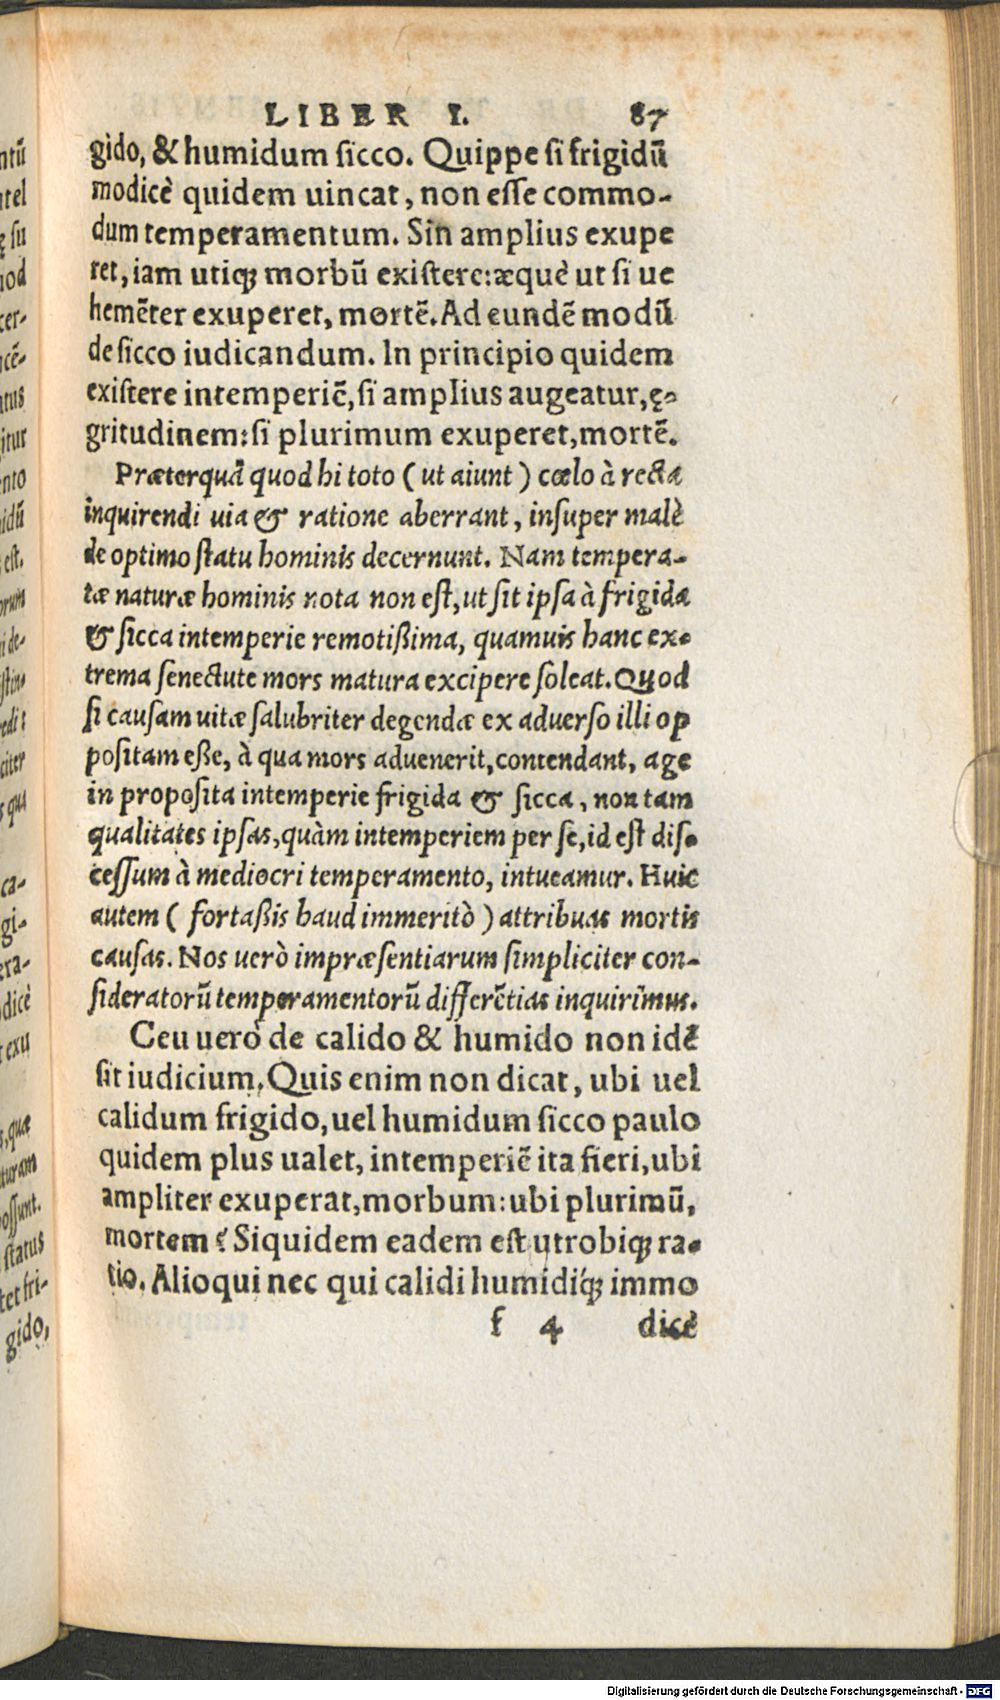 LIBER I. 87
gido, & humidum sicco. Quippe si frigidũ
modicè quidem uincat, non esse commo-
dum temperamentum. Sin amplius exupe
ret, iam utiqꝫ morbũ existere: æquè ut si ue
hemẽter exuperet, mortẽ. Ad eundẽ modũ
de sicco iudicandum. In principio quidem
existere intemperiẽ, si amplius augeatur, ę-
gritudinem: si plurimum exuperet, mortẽ.
Præterquã quod hi toto ( ut aiunt ) cœlo à recta
inquirendi uia & ratione aberrant, insuper malè
de optimo statu hominis decernunt. Nam tempera-
tæ naturæ hominis nota non est, ut sit ipsa à frigida
& sicca intemperie remotißima, quamuis hanc ex-
trema senectute mors matura excipere soleat. Quod
si causam uitæ salubriter degendæ ex aduerso illi op
positam eße, à qua mors aduenerit, contendant, age
in proposita intemperie frigida & sicca, non tam
qualitates ipsas, quàm intemperiem per se, id est dis-
cessum à mediocri temperamento, intueamur. Huic
autem ( fortaßis haud immeritò ) attribuas mortis
causas. Nos uerò impræsentiarum simpliciter con-
sideratorũ temperamentorũ differẽtias inquirimus.
Ceu uerò de calido & humido non idẽ
sit iudicium. Quis enim non dicat, ubi uel
calidum frigido, uel humidum sicco paulo
quidem plus ualet, intemperiẽ ita fieri, ubi
ampliter exuperat, morbum: ubi plurimũ,
mortem? Siquidem eadem est utrobiqꝫ ra-
tio. Alioqui nec qui calidi humidíqꝫ immo
f 4 dicè
ntũ
ntel
ę su
uod
cer-
ncẽ-
atus
itur
nto
idũ
est.
orum
i de-
stin-
edit
citer
s qua
ca-
gi-
era-
odicè
t exu
s, quæ
turam
ossunt.
status
tet fri-
gido,
Digitalisierung gefördert durch die Deutsche Forschungsgemeinschaft - DFG